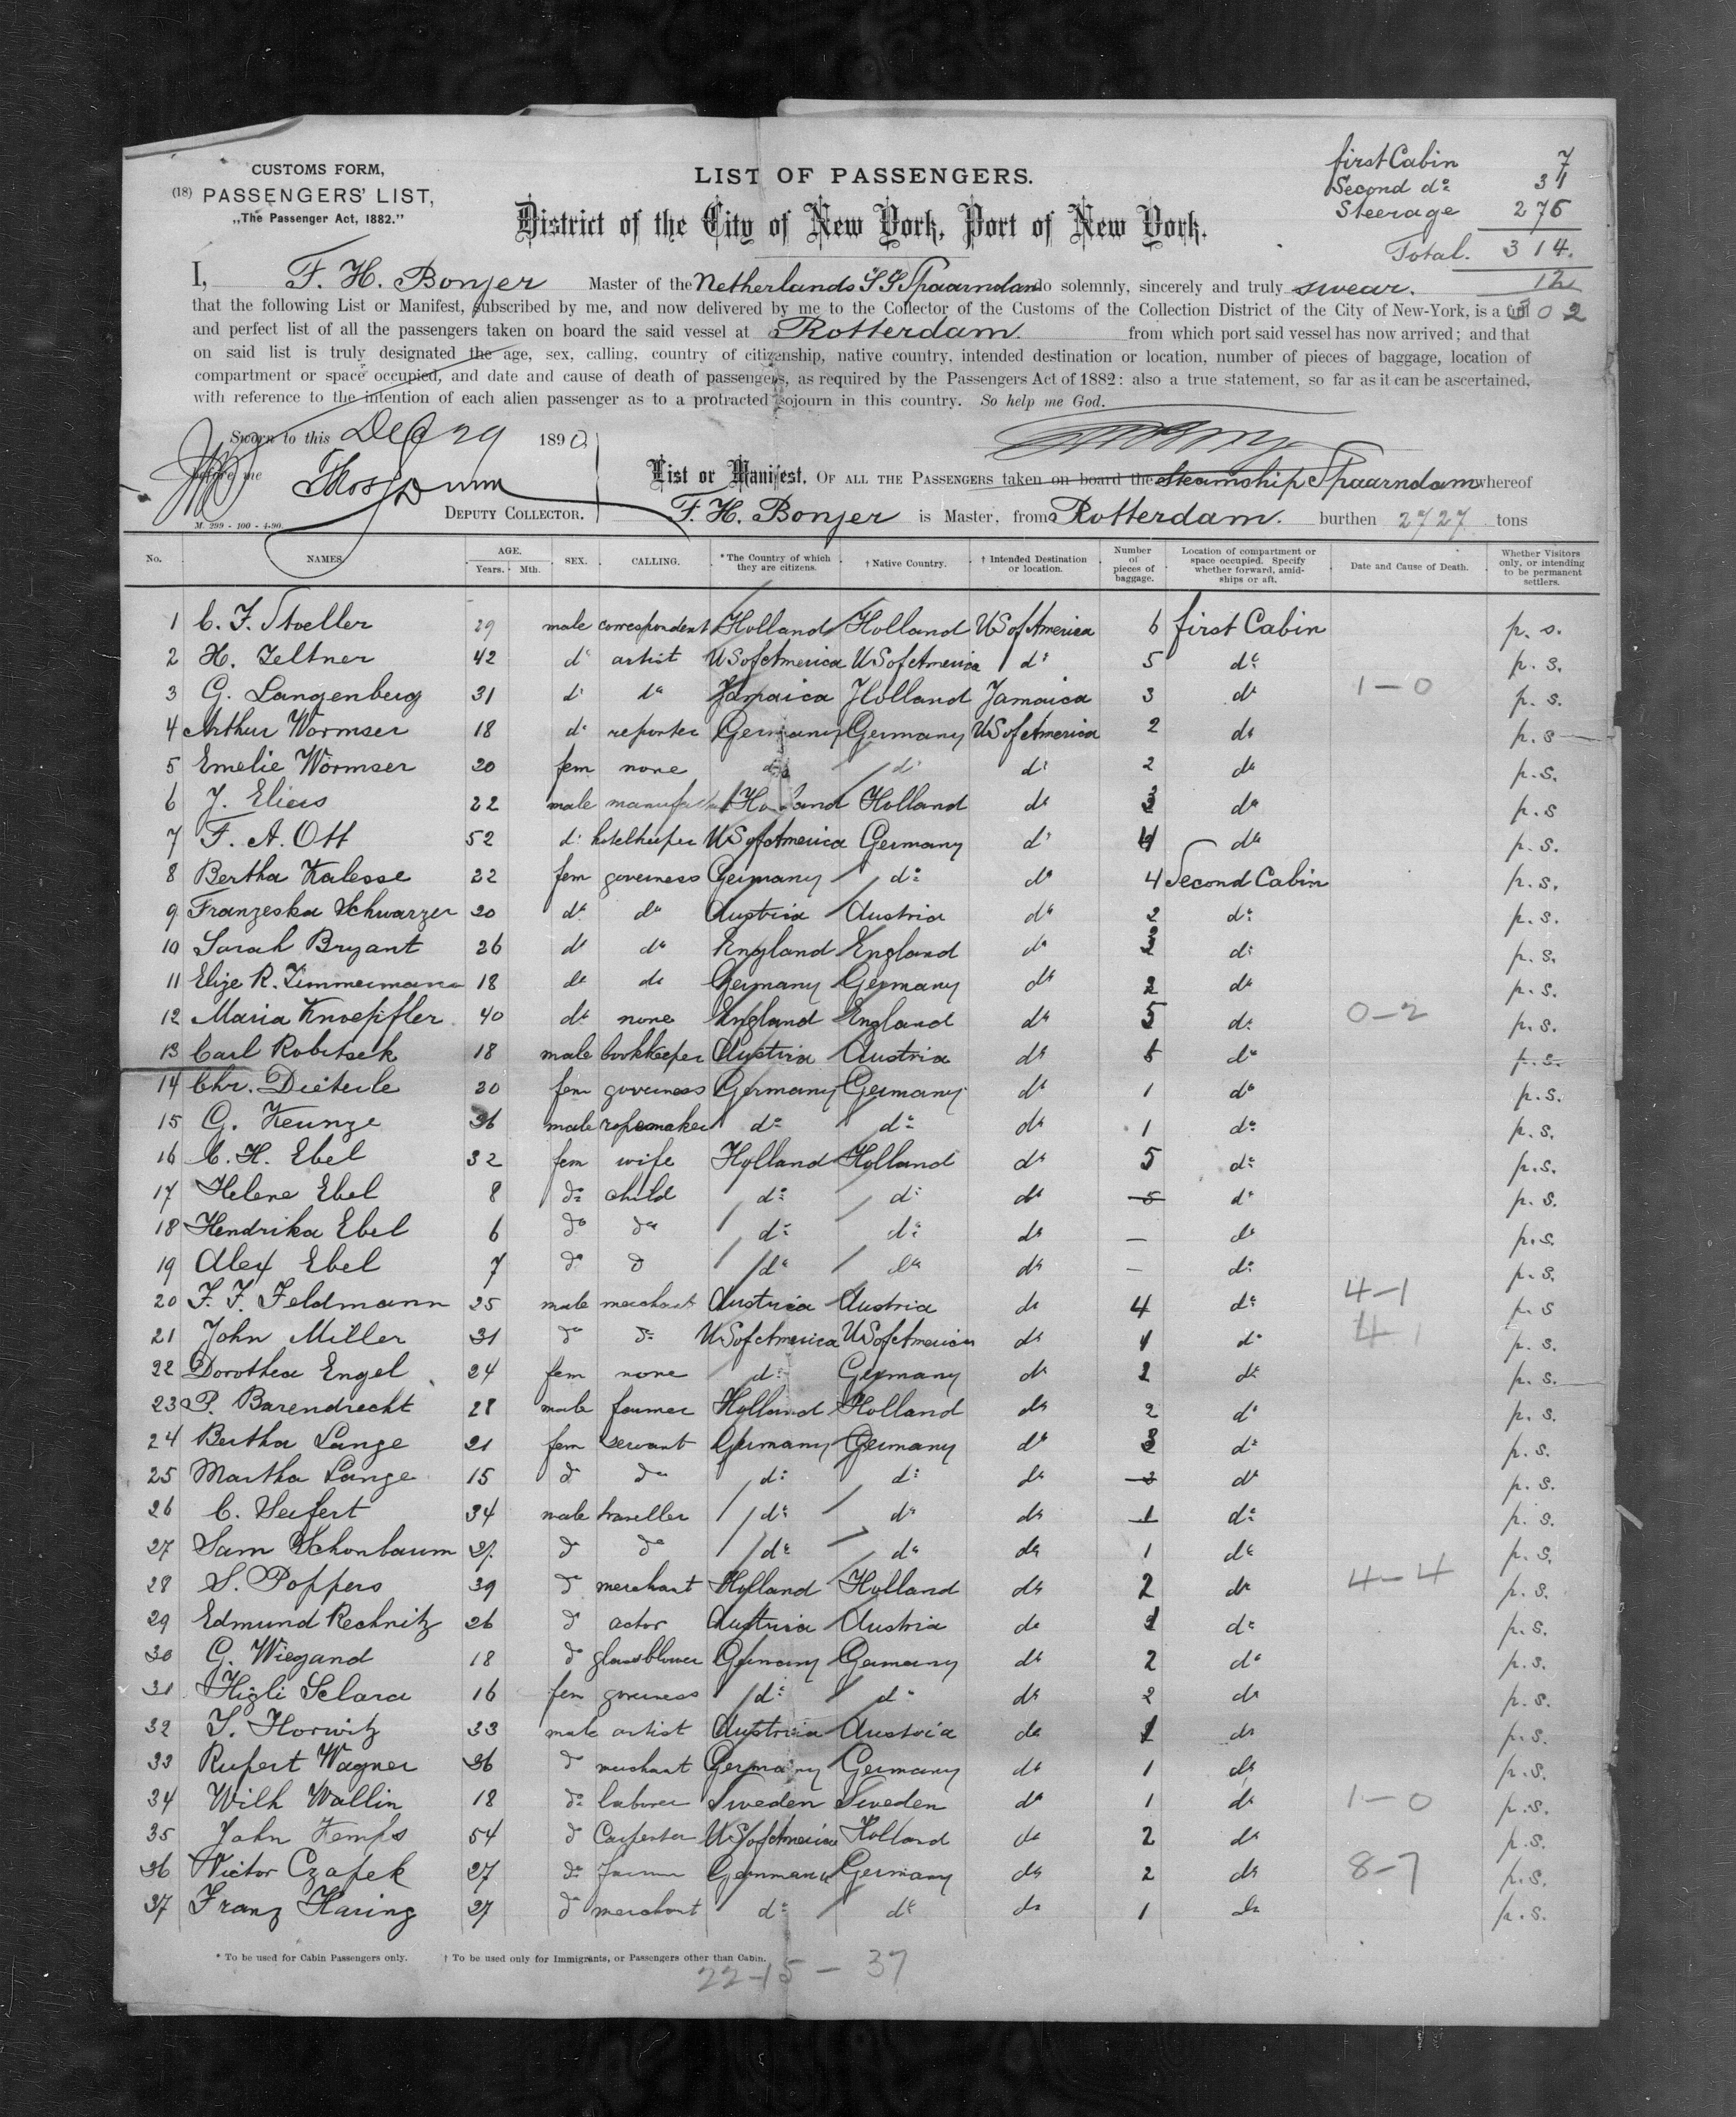 CUSTOMS FORM,
(18) PASSENGERS' LIST,
„The Passenger Act, 1882."
LIST OF PASSENGERS.
District of the City of New York, Port of New York.
first Cabin 7
Second do 31
Steerage 276
Total. 314.
12
302
I, F. H. Bonjer Master of the Netherlands SS Spaarndam do solemnly, sincerely and truly swear.
that the following List or Manifest, subscribed by me, and now delivered by me to the Collector of the Customs of the Collection District of the City of New-York, is a full
and perfect list of all the passengers taken on board the said vessel at Rotterdam. from which port said vessel has now arrived; and that
on said list is truly designated the age, sex, calling, country of citizenship, native country, intended destination or location, number of pieces of baggage, location of
compartment or space occupied, and date and cause of death of passengers, as required by the Passengers Act of 1882: also a true statement, so far as it can be ascertained,
with reference to the intention of each alien passenger as to a protracted sojourn in this country. So help me God.
Sworn to this Dec 29 1890
before me Thos Dunn
DEPUTY COLLECTOR.
M. 299 - 100 - 4-90
List or Manifest, OF ALL THE PASSENGERS taken on board the Steamship Spaarndam whereof
F. H. Bonjer is Master, from Rotterdam. burthen 2727 tons
No. NAMES. AGE. Years. Mth. SEX. CALLING. *The Country of which they are citizens. †Native Country. †Intended Destination or location. Number of pieces of baggage. Location of compartment or space occupied. Specify whether forward, amidships or aft. Date and Cause of Death. Whether Visitors only, or intending to be permanent settlers.
1 C. F. Stoeller 29 male correspondent Holland Holland US of America 6 first Cabin p. s.
2 H. Zeltner 42 do artist US of America US of America do 5 do p. s.
3 G. Langenberg 31 do do Jamaica Holland Jamaica 3 do 1-0 p. s.
4 Arthur Wormser 18 do reporter Germany Germany US of America 2 do p. s
5 Emelie Wormser 20 fem none do do do 2 do p. s.
6 J. Eliers 22 male Holland Holland do 3 do p. s
7 F. A. Ott 52 do hotelkeeper US of America Germany do 4 do p. s.
8 Bertha Kalesse 22 fem governess Germany do do 4 Second Cabin p. s.
9 Franzeska Schwarzer 20 do do Austria Austria do 2 do p. s.
10 Sarah Bryant 26 do do England England do 3 do p. s.
11 Elize R. Zimmermann 18 do do Germany Germany do 2 do p. s.
12 Maria Knoepfler 40 do none England England do 5 do 0-2 p. s.
13 Carl Robitsek 18 male bookkeeper Austria Austria do do p. s.
14 Chr. Dieterle 20 fem governess Germany Germany do 1 do p. s.
15 G. Kunze 36 male ropemaker do do do 1 do p. s.
16 C. H. Ebel 32 fem wife Holland Holland do 5 do p. s.
17 Helene Ebel 8 do child do do do do p. s.
18 Hendrika Ebel 6 do do do do do — do p. s.
19 Alex Ebel 7 do do do do do — do p. s.
20 F. F. Feldmann 25 male merchant Austria Austria do 4 do 4-1 p. s
21 John Miller 31 do do US of America US of America do 1 do 4 1 p. s.
22 Dorothea Engel 24 fem none do Germany do 2 do p. s.
23 P. Barendrecht 28 male farmer Holland Holland do 2 do p. s.
24 Bertha Lange 21 fem servant Germany Germany do 3 do p. s.
25 Martha Lange 15 do do do do do do p. s.
26 C. Seifert 34 male traveller do do do 1 do p. s.
27 Sam Schonbaum 27 do do do do do 1 do p. s.
28 S. Poppers 39 do merchant Holland Holland do 2 do 4-4 p. s.
29 Edmund Rechnitz 26 do actor Austria Austria do 1 do p. s.
30 G. Wiegand 18 do glassblower Germany Germany do 2 do p. s.
31 Higli Sclara 16 fem governess do do do 2 do p. s.
32 T. Horwitz 33 male artist Austria Austria do 1 do p. s.
33 Rupert Wagner 36 do merchant Germany Germany do 1 do p. s.
34 Wilh Wallin 18 do laborer Sweden Sweden do 1 do 1-0 p. s.
35 John Kemps 54 do Carpenter US of America Holland do 2 do p. s.
36 Victor Czapek 27 do Germany Germany do 2 do 8-7 p. s.
37 Franz Haring 27 do merchant do do do 1 do p. s.
* To be used for Cabin Passengers only. † To be used only for Immigrants, or Passengers other than Cabin.
22-15 — 37